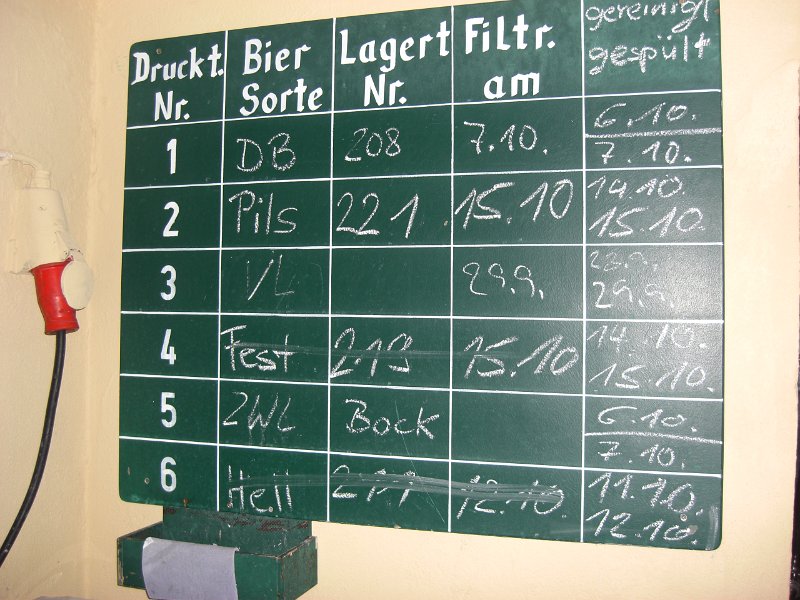 Druckt. Nr. Bier Sorte Lagert Nr. Filtr. am gereinigt gespült
1 DB 208 7.10. 6.10. 7.10.
2 Pils 221 15.10 14.10. 15.10.
3 VL 29.9. 23.9. 29.9.
4 Fest 213 15.10 14.10. 15.10.
5 ZWL Bock 6.10. 7.10.
6 Hell 12.10. 11.10. 12.10.